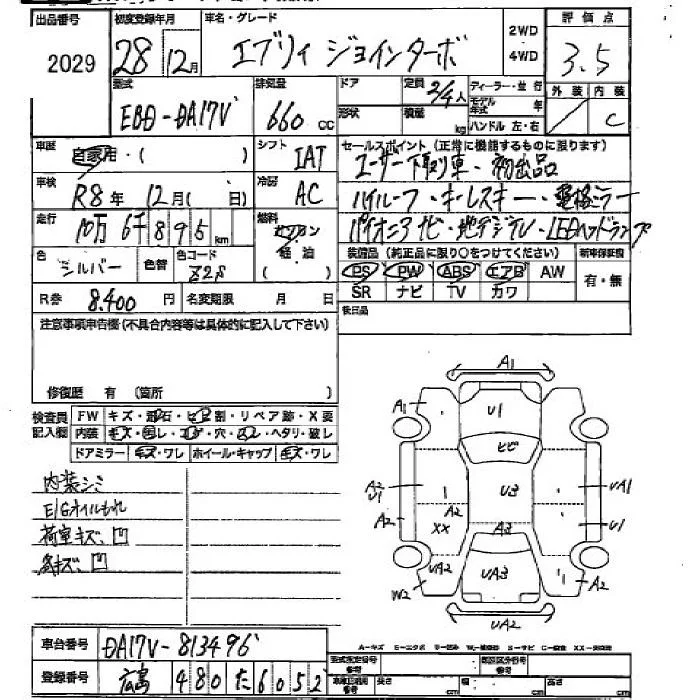 出品番号 初度登録年月 車名・グレード 2WD 評価点
2029 28 12月 エブリィ ジョインターボ 4WD 3.5
型式 排気量 ドア 定員 ディーラー・並行 外装 内装
EBD-DA17V 660cc 形状 2/4人 積量 kg モデル年式 年 ハンドル 左・右 C
車歴 自家用・( ) シフト IAT セールスポイント (正常に機能するものに限ります)
ユーザー下取り車・初出品
車検 R8年 12月( 日) 冷房 AC ハイルーフ・キーレスキー・電格ミラー
走行 10万6千895km 燃料 ガソリン パイオニアナビ・地デジテレ・LEDヘッドランプ
軽油
( )
色 シルバー 色替 色コード Z2S 装備品 (純正品に限り〇をつけてください) 新車保証書
PS PW ABS エアB AW 有・無
R券 8,400円 名変期限 月 日 SR ナビ TV カワ
注意事項申告欄(不具合内容等は具体的に記入して下さい) 後日品
修復歴 有 (箇所 )
検査員記入欄 FW キズ・飛石・ヒビ割・リペア跡・X要
内装 キズ・汚レ・コゲ・穴・スレ・ヘタリ・破レ
ドアミラー キズ・ワレ ホイール・キャップ キズ・ワレ
内装シミ
E/Gオイルもれ
荷室キズ、凹
各キズ、凹
A1
A1 U1
ヒビ
A2 U1 U3 UA1
A2 A2 XX A3 U1
UA2 UA3 A2
W2
UA2
車台番号 DA17V-813496
登録番号 広島 480 た 6052
A-キズ E-エクボ U-凹み W-補修跡 S-サビ C-腐食 XX-交換済
型式指定番号 類別区分番号
参考 長さ cm 幅 cm 高さ cm